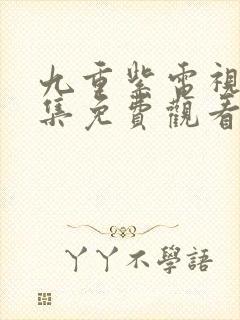 九重紫電視
集免費觀看
丫丫不學語